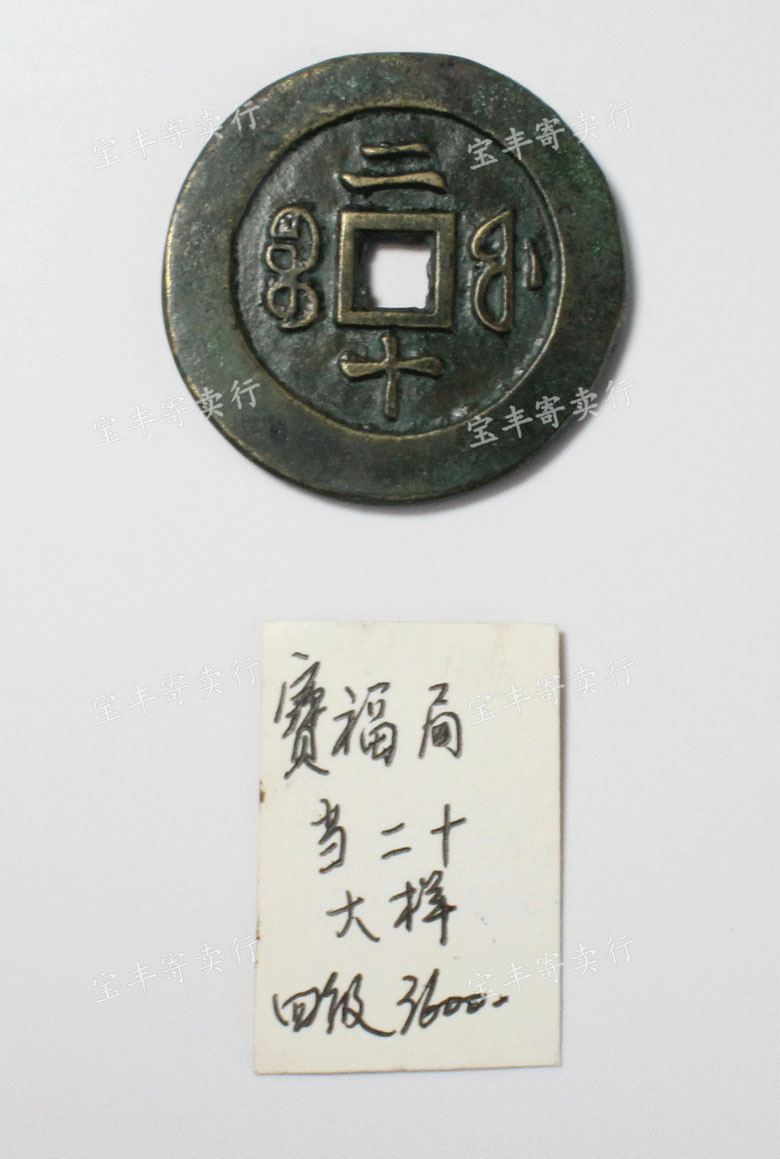 宝丰寄卖行 宝丰寄卖行
二
十
宝丰寄卖行 宝丰寄卖行
宝丰寄卖行 宝丰寄卖行
寳福局
当二十
大样
四级 3600.
宝丰寄卖行 宝丰寄卖行